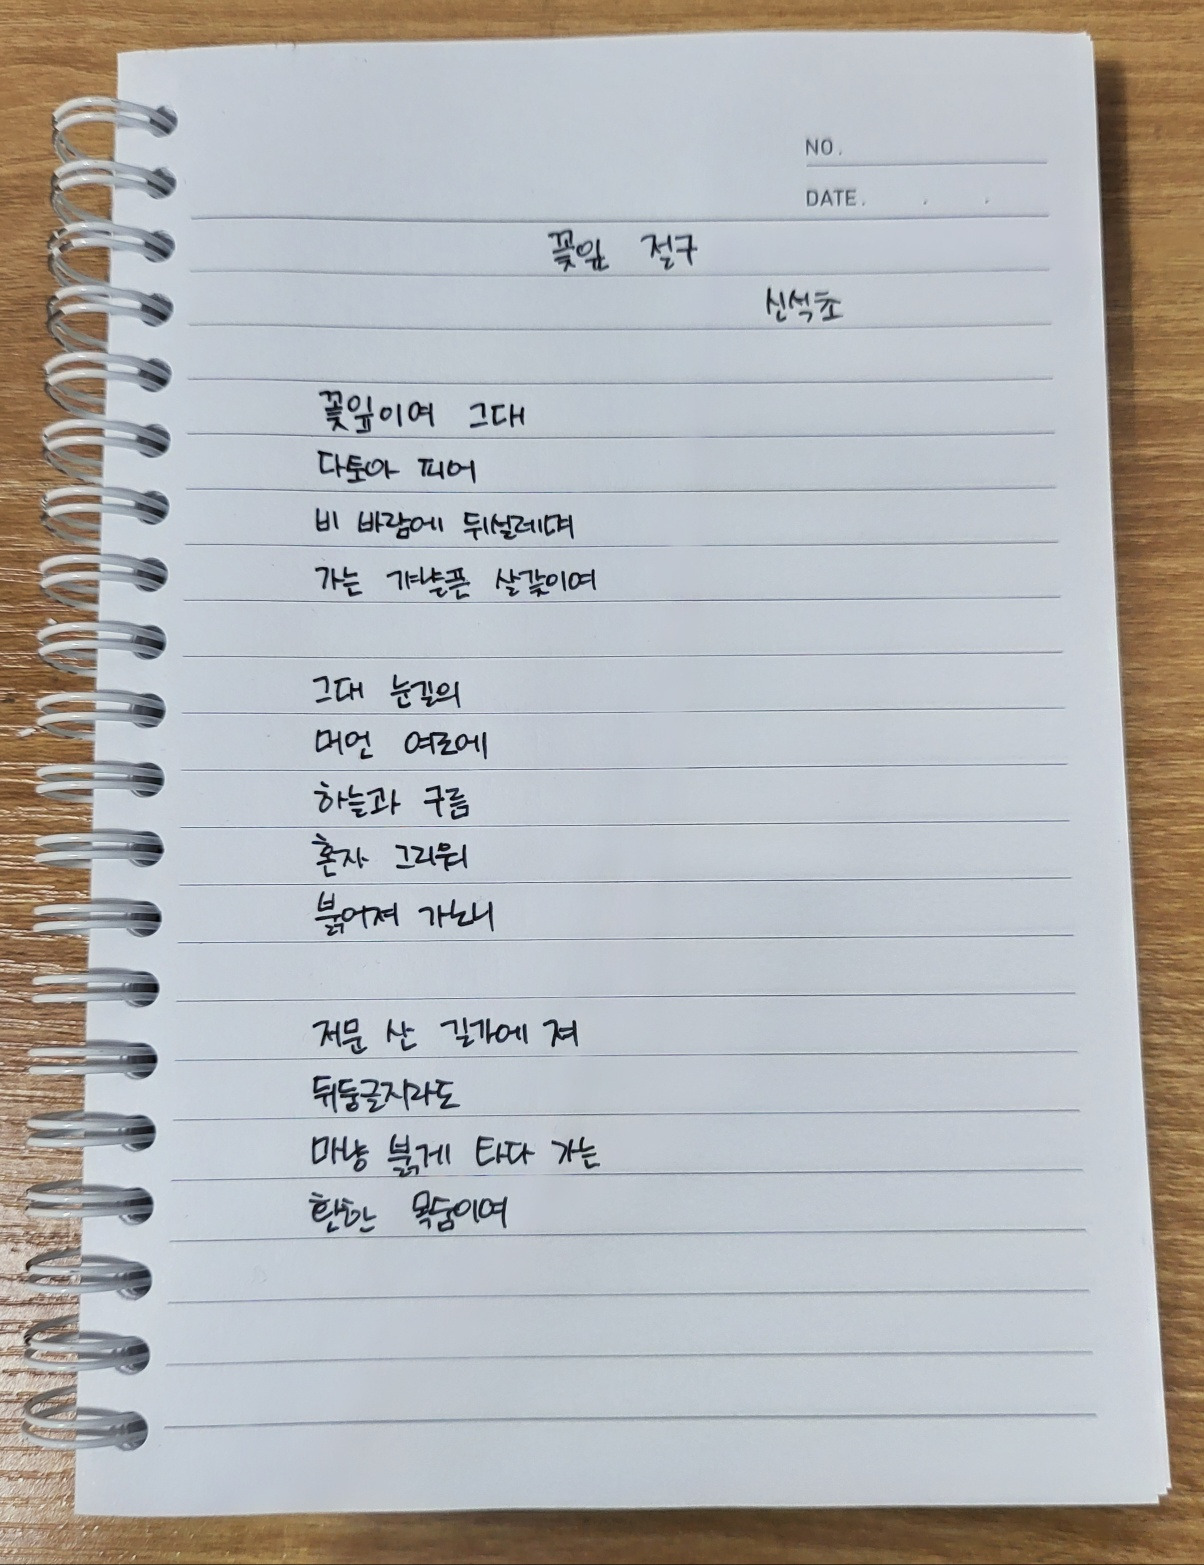 NO.
DATE. . .
꽃잎 절구
신석초
꽃잎이여 그대
다토아 피어
비 바람에 뒤설레며
가는 가냘픈 살갗이여
그대 눈길의
머언 여로에
하늘과 구름
혼자 그리워
붉어져 가노니
저문 산 길가에 져
뒤둥글지라도
마냥 붉게 타다 가는
환한 목숨이여